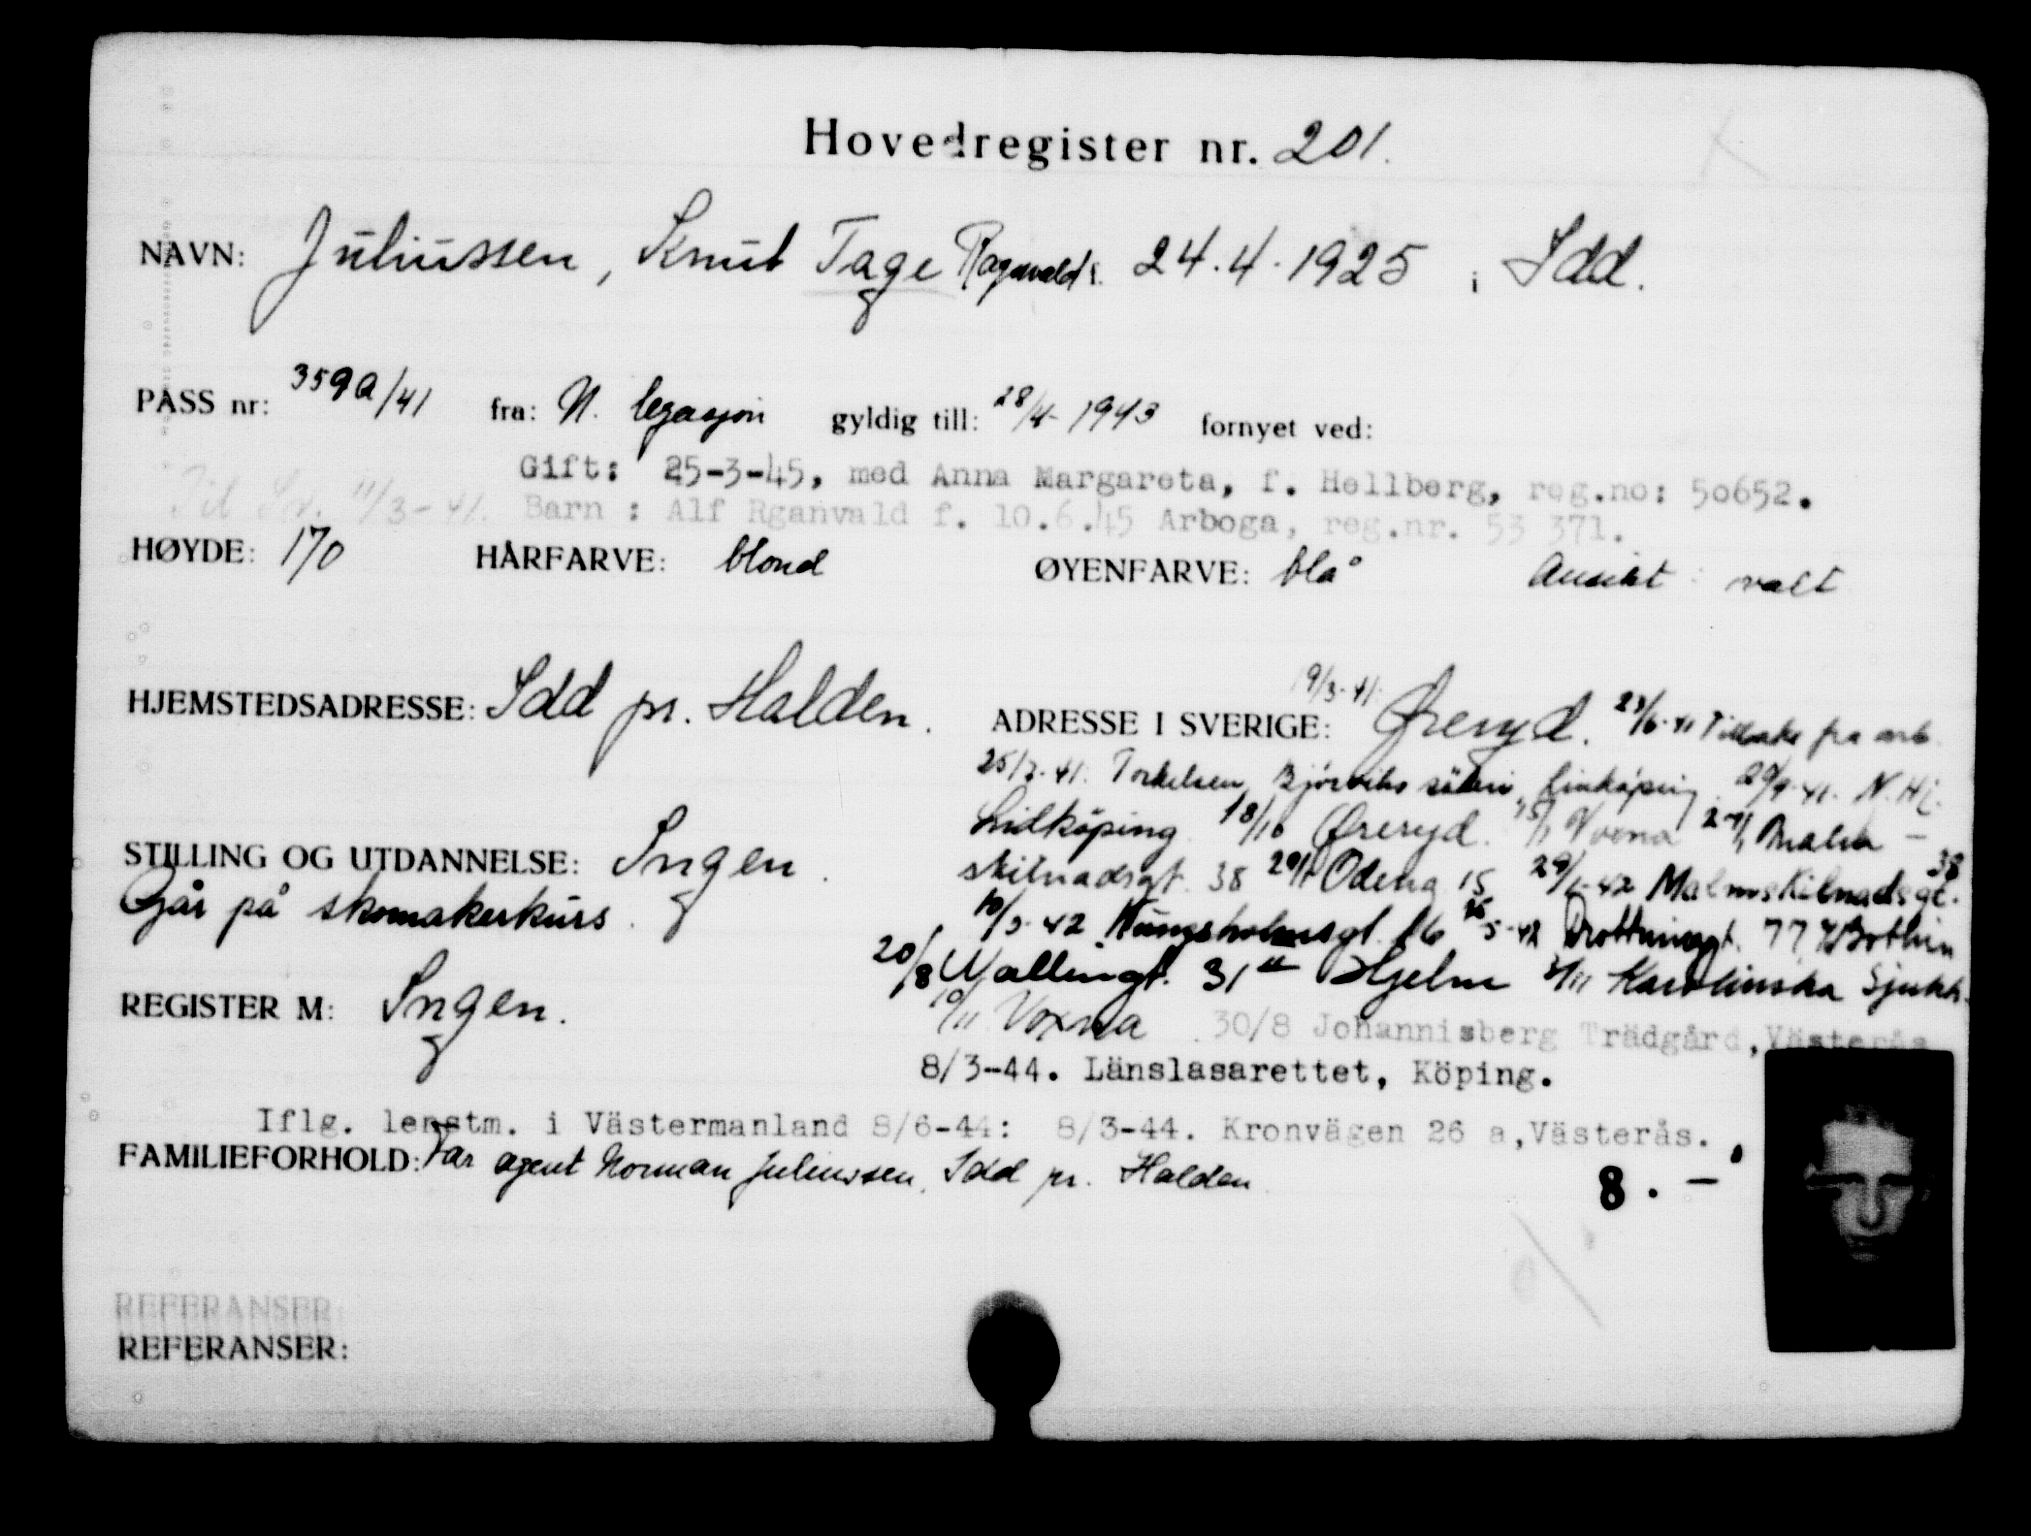 Hovedregister nr. 201.
NAVN: Juliussen, Knut Tage Ragnvald f. 24.4.1925 i Idd.
PASS nr: 359a/41 fra: N. legasjon gyldig till: 28/4-1943 fornyet ved:
Gift: 25-3-45, med Anna Margareta, f. Hellberg, reg.no: 50652.
Til Sv. 11/3-41. Barn : Alf Rganvald f. 10.6.45 Arboga, reg.nr. 53 371.
HØYDE: 170 HÅRFARVE: blond ØYENFARVE: blå Ansikt : valt
HJEMSTEDSADRESSE: Idd pr. Halden. ADRESSE I SVERIGE: 19/3-41. Øreryd. 23/6-41 Tilbake fra arb.
25/7-41. Torkelsen, Linköping. 29/9-41. N.Hj.
Lidköping 18/10 Øreryd. 15/1 Voxna 27/1 Malm-
STILLING OG UTDANNELSE: Ingen. skilnadsgt. 38 Odeng. 15 29/4-42 Malmskilnadsgt. 38
Går på skomakerkurs. 10/5-42 Kungsholmsgt. 16 5-42 Drottninggt. 77 Bothin
20/8 Wallingt. 31 II Hjelm 2/11 Karolinska Sjukh.
REGISTER M: Ingen. 10/11 Voxna 30/8 Johannisberg Trädgård, Västerås
8/3-44. Länslasarettet, Köping.
Iflg. lenstm. i Västermanland 8/6-44: 8/3-44. Kronvägen 26 a, Västerås.
FAMILIEFORHOLD: Far agent Norman Juliussen, Idd pr. Halden
8.-
REFERANSER:
REFERANSER: